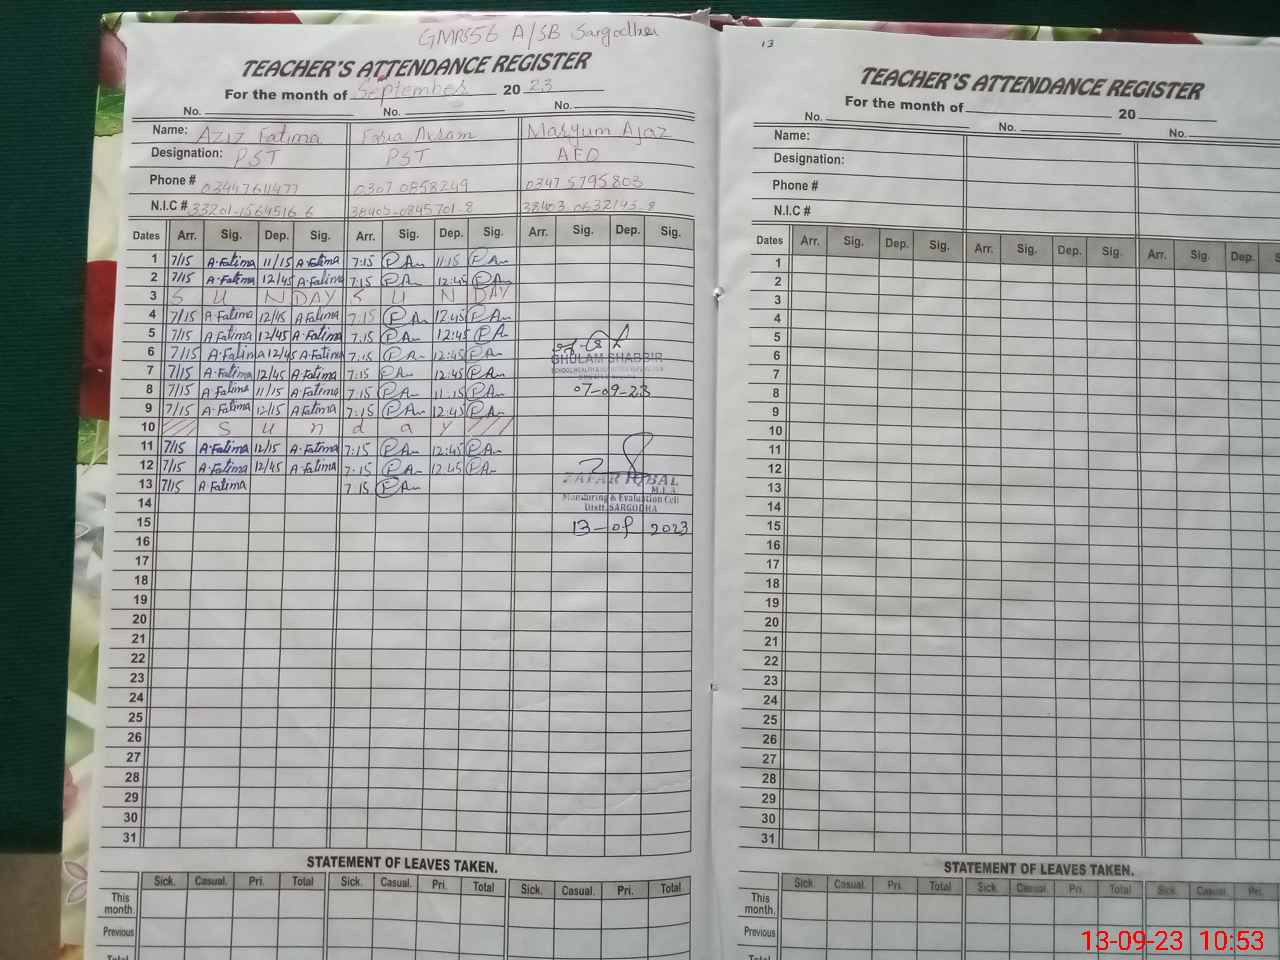 GMPS56 A/SB Sargodha
TEACHER'S ATTENDANCE REGISTER
For the month of September 2023
No. No. No.
Name: Aziz Fatima Maryum Ajaz
Designation: PST PST AEO
Phone # 03447611477 0307 0858249 0347 5795803
N.I.C # 33201-1564516-6 38405-0345701-8 38403-0632143-8
Dates Arr. Sig. Dep. Sig. Arr. Sig. Dep. Sig. Arr. Sig. Dep. Sig.
1 7/15 A.Fatima 11/15 A.Fatima 7:15 11:15
2 7/15 A.Fatima 12/45 A.Fatima 7:15 12:45
3 S U N DAY S U N DAY
4 7/15 A.Fatima 12/45 A.Fatima 7:15 12:45
5 7/15 A.Fatima 12/45 A.Fatima 7:15 12:45
6 7/15 A.Fatima 12/45 A.Fatima 7:15 12:45
GHULAM SHABBIR
7 7/15 A.Fatima 12/45 A.Fatima 7:15 12:45
8 7/15 A.Fatima 11/15 A.Fatima 7:15 11:15 07-09-23
9 7/15 A.Fatima 12/15 A.Fatima 7:15 12:45
10 S u n d a y
11 7/15 A.Fatima 12/15 A.Fatima 7:15 12:45
12 7/15 A.Fatima 12/45 A.Fatima 7:15 12:45
ZAFAR IQBAL
M.E.A
13 7/15 A.Fatima 7:15
Monitoring & Evaluation Cell
Distt. SARGODHA
14
15 13-09 2023
16
17
18
19
20
21
22
23
24
25
26
27
28
29
30
31
STATEMENT OF LEAVES TAKEN.
Sick. Casual. Pri. Total Sick. Casual. Pri. Total Sick. Casual. Pri. Total
This month.
Previous
Total
13
TEACHER'S ATTENDANCE REGISTER
For the month of 20
No. No. No.
Name:
Designation:
Phone #
N.I.C #
Dates Arr. Sig. Dep. Sig. Arr. Sig. Dep. Sig. Arr. Sig. Dep. S
1
2
3
4
5
6
7
8
9
10
11
12
13
14
15
16
17
18
19
20
21
22
23
24
25
26
27
28
29
30
31
STATEMENT OF LEAVES TAKEN.
Sick. Casual. Pri. Total Sick. Casual. Pri. Total Sick. Casual. Pri.
This month.
Previous
Total
13-09-23 10:53